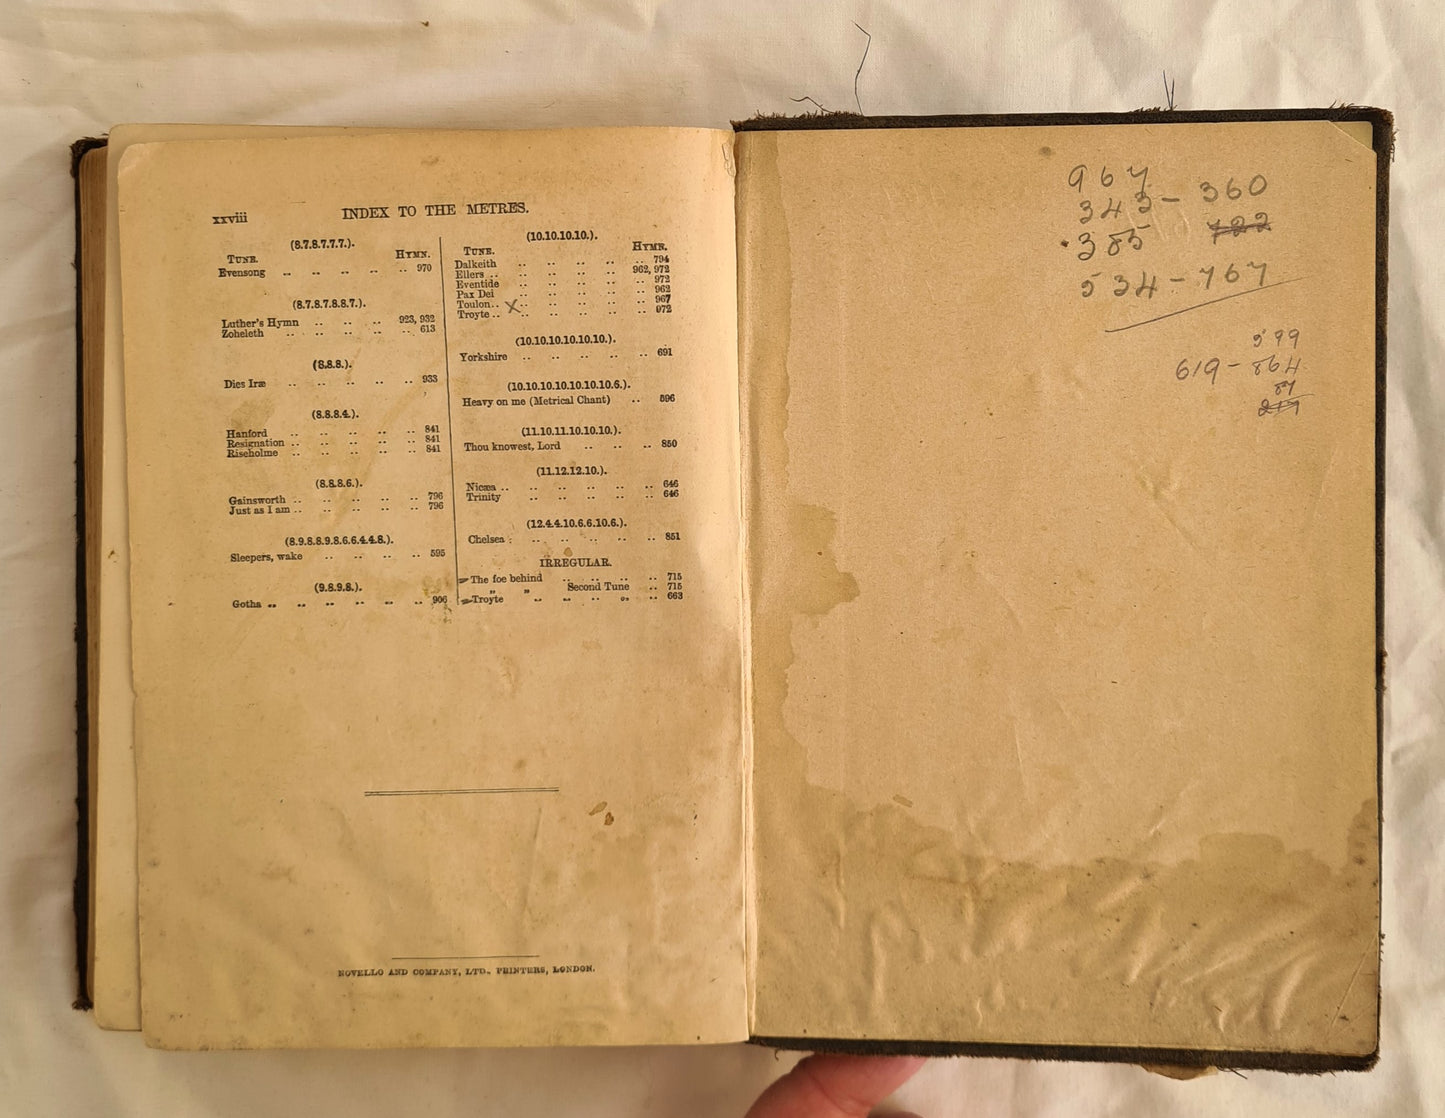 xxviii INDEX TO THE METRES.
(8.7.8.7.7.7.).
TUNE. HYMN.
Evensong .. .. .. .. .. 970
(8.7.8.7.8.8.7.).
Luther's Hymn .. .. .. 923, 932
Zoheleth .. .. .. .. .. 613
(8.8.8.).
Dies Iræ .. .. .. .. .. 933
(8.8.8.4.).
Hanford .. .. .. .. .. 841
Resignation .. .. .. .. .. 841
Riseholme .. .. .. .. .. 841
(8.8.8.6.).
Gainsworth .. .. .. .. .. 796
Just as I am .. .. .. .. .. 796
(8.9.8.8.9.8.6.6.4.4.8.).
Sleepers, wake .. .. .. .. 595
(9.8.9.8.).
Gotha .. .. .. .. .. .. 906
(10.10.10.10.).
TUNE. HYMN.
Dalkeith .. .. .. .. .. 794
Ellers .. .. .. .. .. 962, 972
Eventide .. .. .. .. .. 972
Pax Dei .. .. .. .. .. 962
Toulon .. X .. .. .. .. .. 967
Troyte .. .. .. .. .. .. 972
(10.10.10.10.10.10.).
Yorkshire .. .. .. .. .. 691
(10.10.10.10.10.10.10.6.).
Heavy on me (Metrical Chant) .. 596
(11.10.11.10.10.10.).
Thou knowest, Lord .. .. .. 850
(11.12.12.10.).
Nicæa .. .. .. .. .. .. 646
Trinity .. .. .. .. .. 646
(12.4.4.10.6.6.10.6.).
Chelsea .. .. .. .. .. 851
IRREGULAR.
The foe behind .. .. .. .. 715
" " Second Tune .. 715
Troyte .. .. .. .. .. 663
NOVELLO AND COMPANY, LTD., PRINTERS, LONDON.
967
343 - 360
385 722
534 - 767
599
619 - 864
87